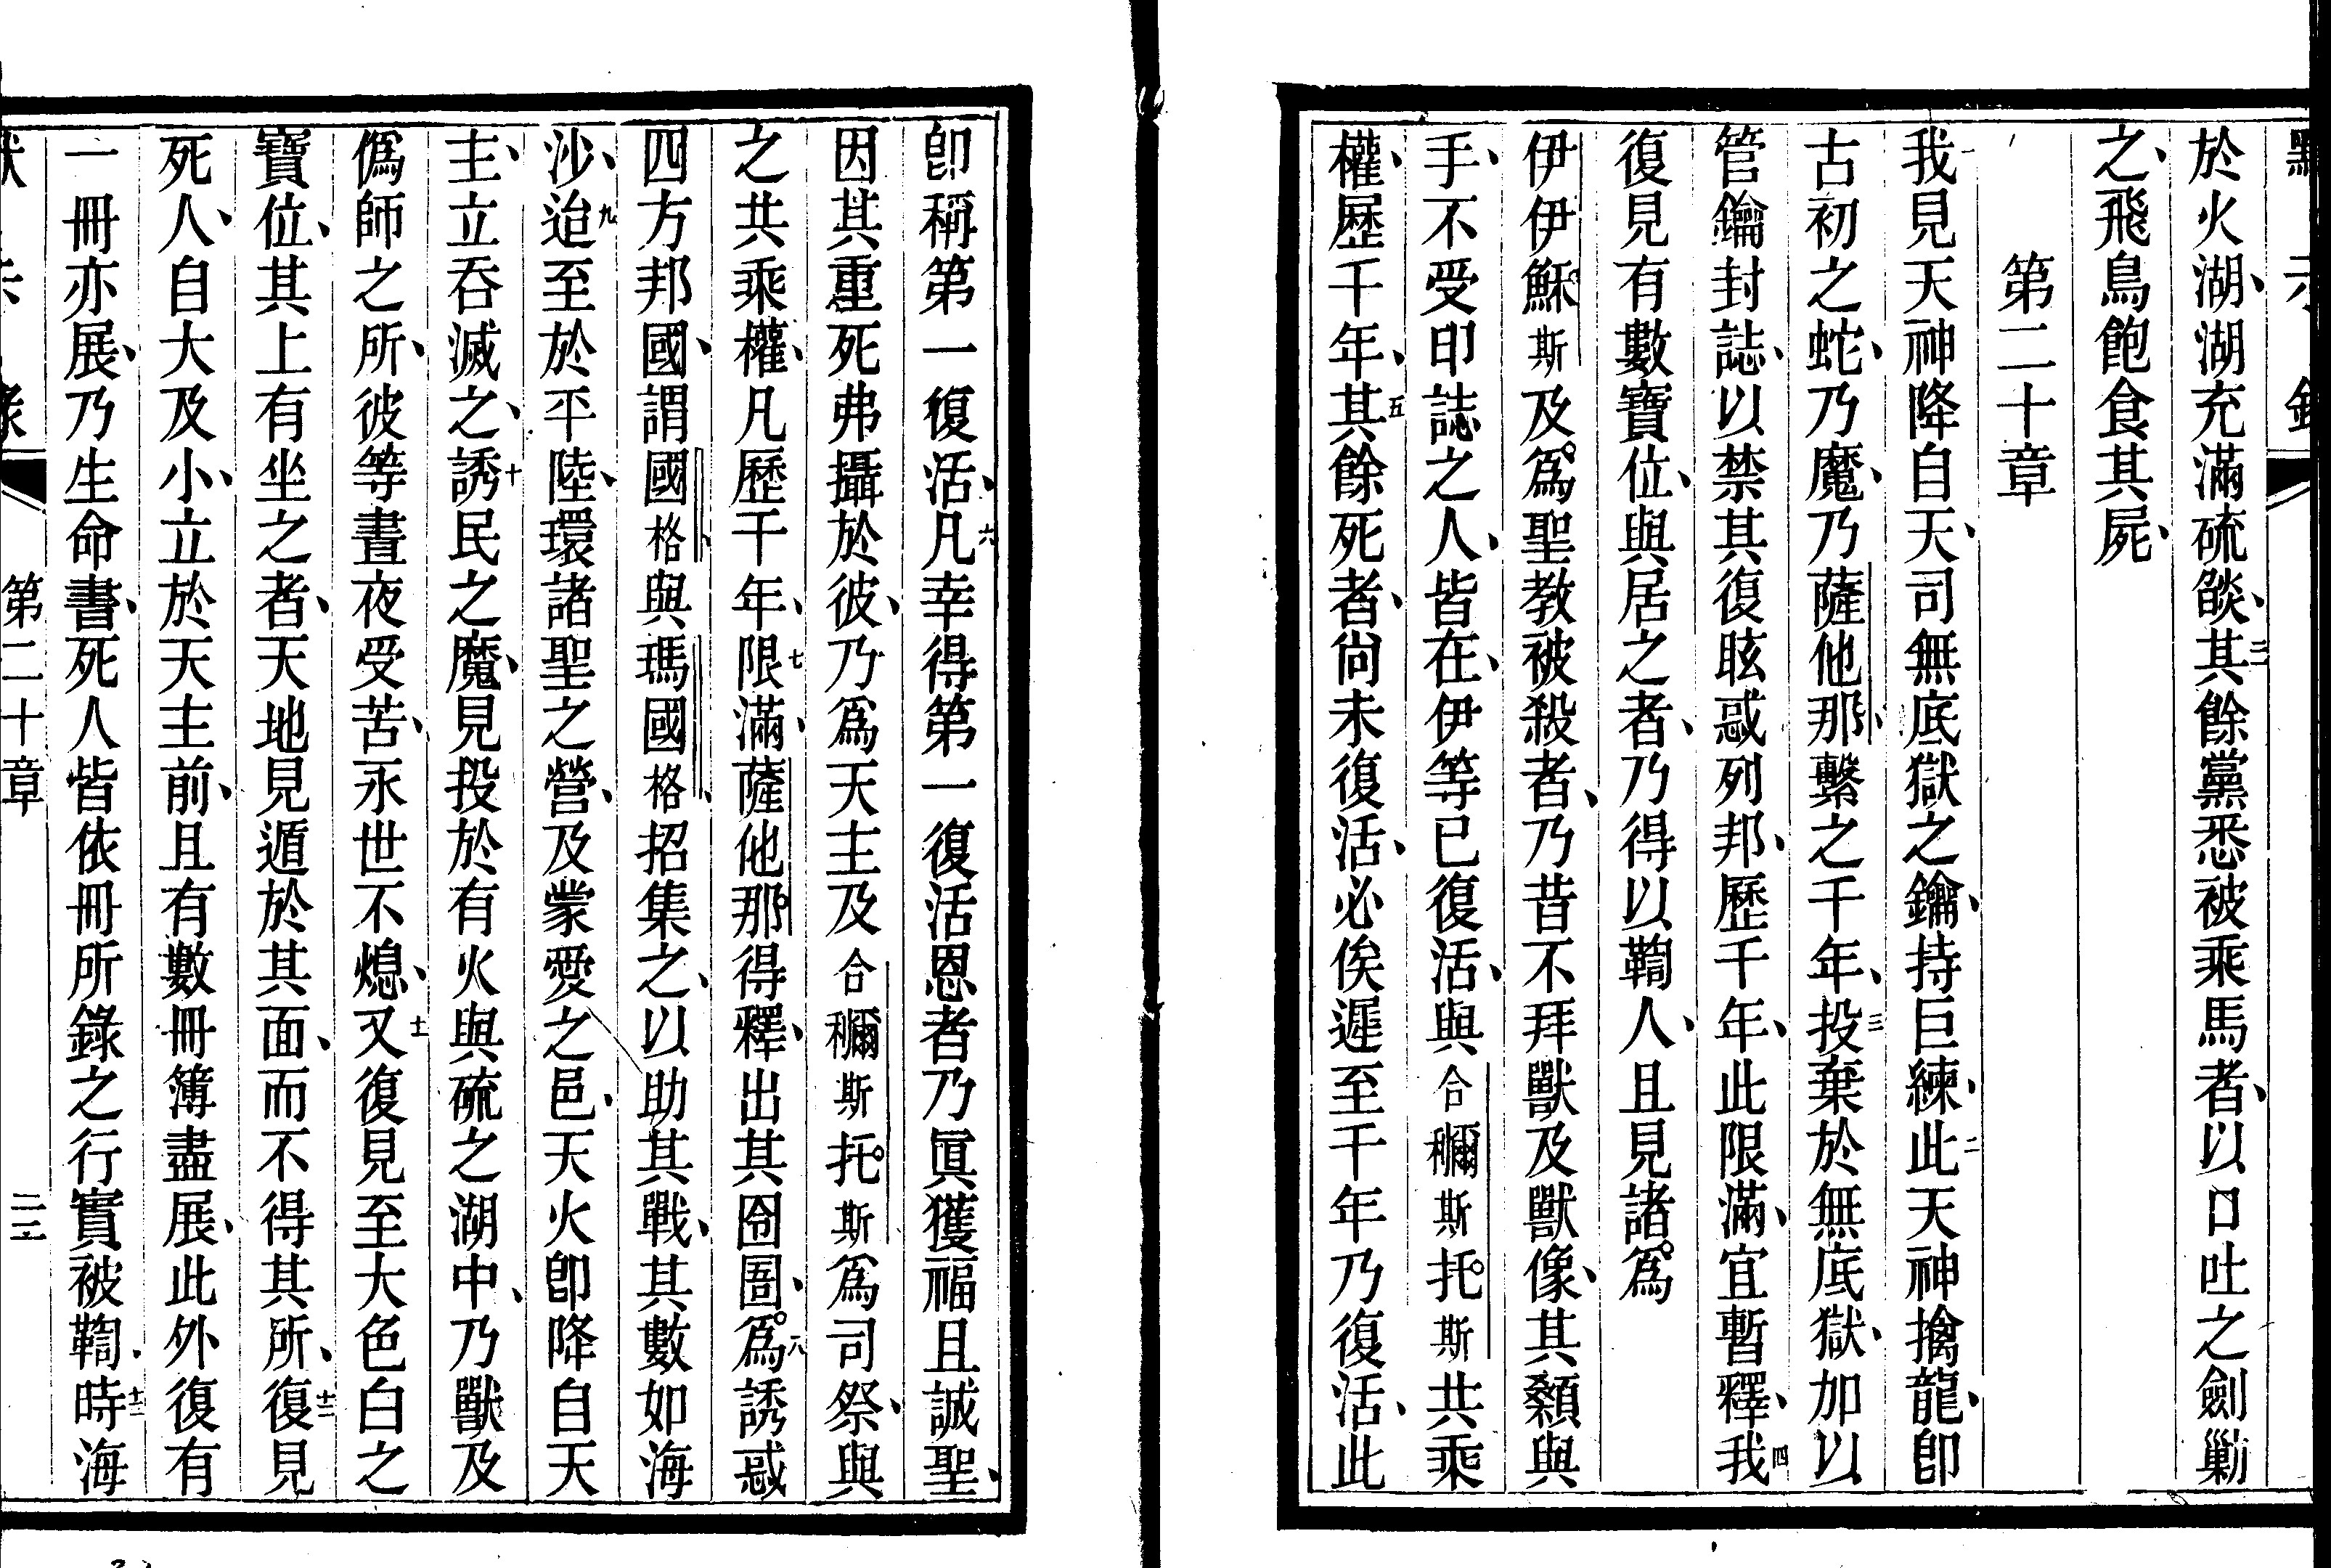 默示錄
於火湖、湖充滿硫燄、三其餘黨悉被乘馬者、以口吐之劍勦
之、飛鳥飽食其屍、
第二十章
一我見天神降自天、司無底獄之鑰、持巨練、二此天神擒龍、卽
古初之蛇、乃魔、乃薩他那、繫之千年、三投棄於無底獄、加以
管鑰封誌、以禁其復眩惑列邦、歷千年、此限滿、宜暫釋、四我
復見有數寶位、與居之者、乃得以鞫人、且見諸爲
伊伊穌斯及爲聖教被殺者、乃昔不拜獸及獸像、其顙與
手、不受印誌之人、皆在、伊等已復活、與合穪斯托斯共乘
權、歷千年、五其餘死者、尙未復活、必俟遲至千年乃復活、此
卽稱第一復活、六凡幸得第一復活恩者乃眞獲福且誠聖、
因其重死弗攝於彼、乃爲天主及合穪斯托斯爲司祭、與
之共乘權、凡歷千年、七限滿、薩他那得釋、出其囹圄、八爲誘惑
四方邦國、謂國格、與瑪國格、招集之、以助其戰、其數如海
沙、九迨至於平陸、環諸聖之營、及蒙愛之邑、天火卽降自天
主、立吞滅之、十誘民之魔、見投於有火與硫之湖中、乃獸及
僞師之所、彼等晝夜受苦、永世不熄、十一又復見至大色白之
寶位、其上有坐之者、天地見遁於其面、而不得其所、十二復見
死人、自大及小、立於天主前、且有數冊簿盡展、此外復有
一冊亦展、乃生命書、死人皆依冊所錄之行實被鞫、十三時海
第二十章